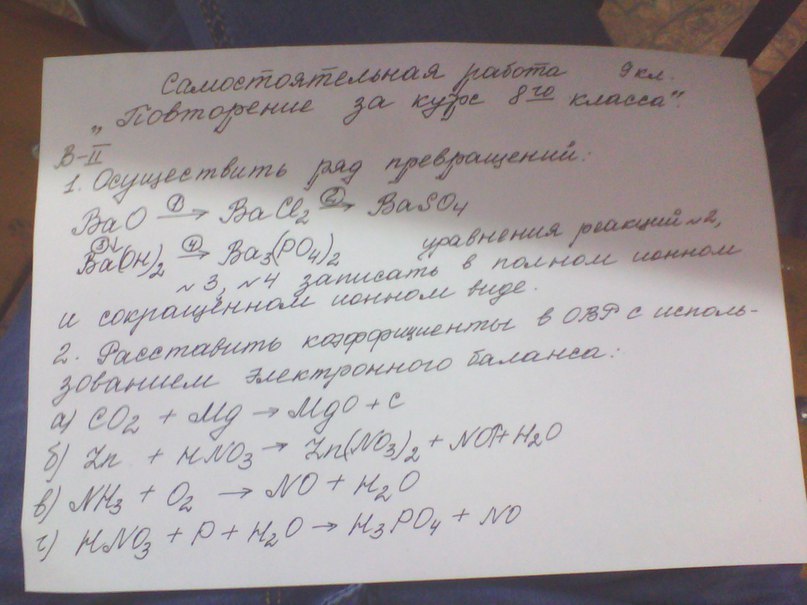 Самостоятельная работа 9 кл.
„Повторение за курс 8го класса".
В-II
1. Осуществить ряд превращений:
BaO ①→ BaCl₂ ②→ BaSO₄
③↓
Ba(OH)₂ ④→ Ba₃(PO₄)₂ уравнения реакций №2,
№3, №4 записать в полном ионном
и сокращённом ионном виде.
2. Расставить коэффициенты в ОВР с исполь-
зованием электронного баланса:
а) CO₂ + Mg → MgO + C
б) Zn + HNO₃ → Zn(NO₃)₂ + NO↑ + H₂O
в) NH₃ + O₂ → NO + H₂O
г) HNO₃ + P + H₂O → H₃PO₄ + NO